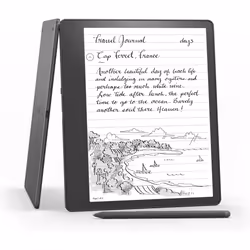 Travel Journal days
Cap Ferret, France
Another beautiful day of work life
and indulging in many oysters and
perhaps too much white wine.
Low Tide after lunch, the perfect
time to go to the ocean. Barely
another soul there. Heaven!